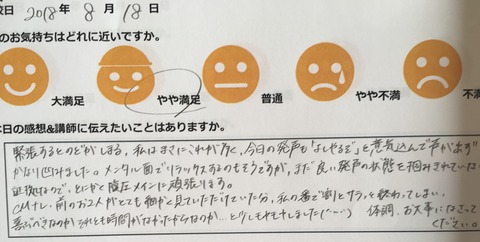 日 2018年 8月 18日
のお気持ちはどれに近いですか。
大満足 やや満足 普通 やや不満 不満
本日の感想&講師に伝えたいことはありますか。
緊張するとのどがしまる、私はまさにこれが方で、今日の発声も「よしやるぞ」と意気込んで声が出ず
かなり凹みました。メンタル面でリラックスするのもそうですが、まだ良い発声の状態を掴みきれていない
証拠なので、とにかく陰圧メインに頑張ります。
CMナレ、前のお2人がとても細かく見ていただけていた分、私の番で割とサラッと終わってしまい、
喜ぶべきなのかそれとも時間がなかったからなのか…と少しもやもやしました
体調、お大事になさって
ください。